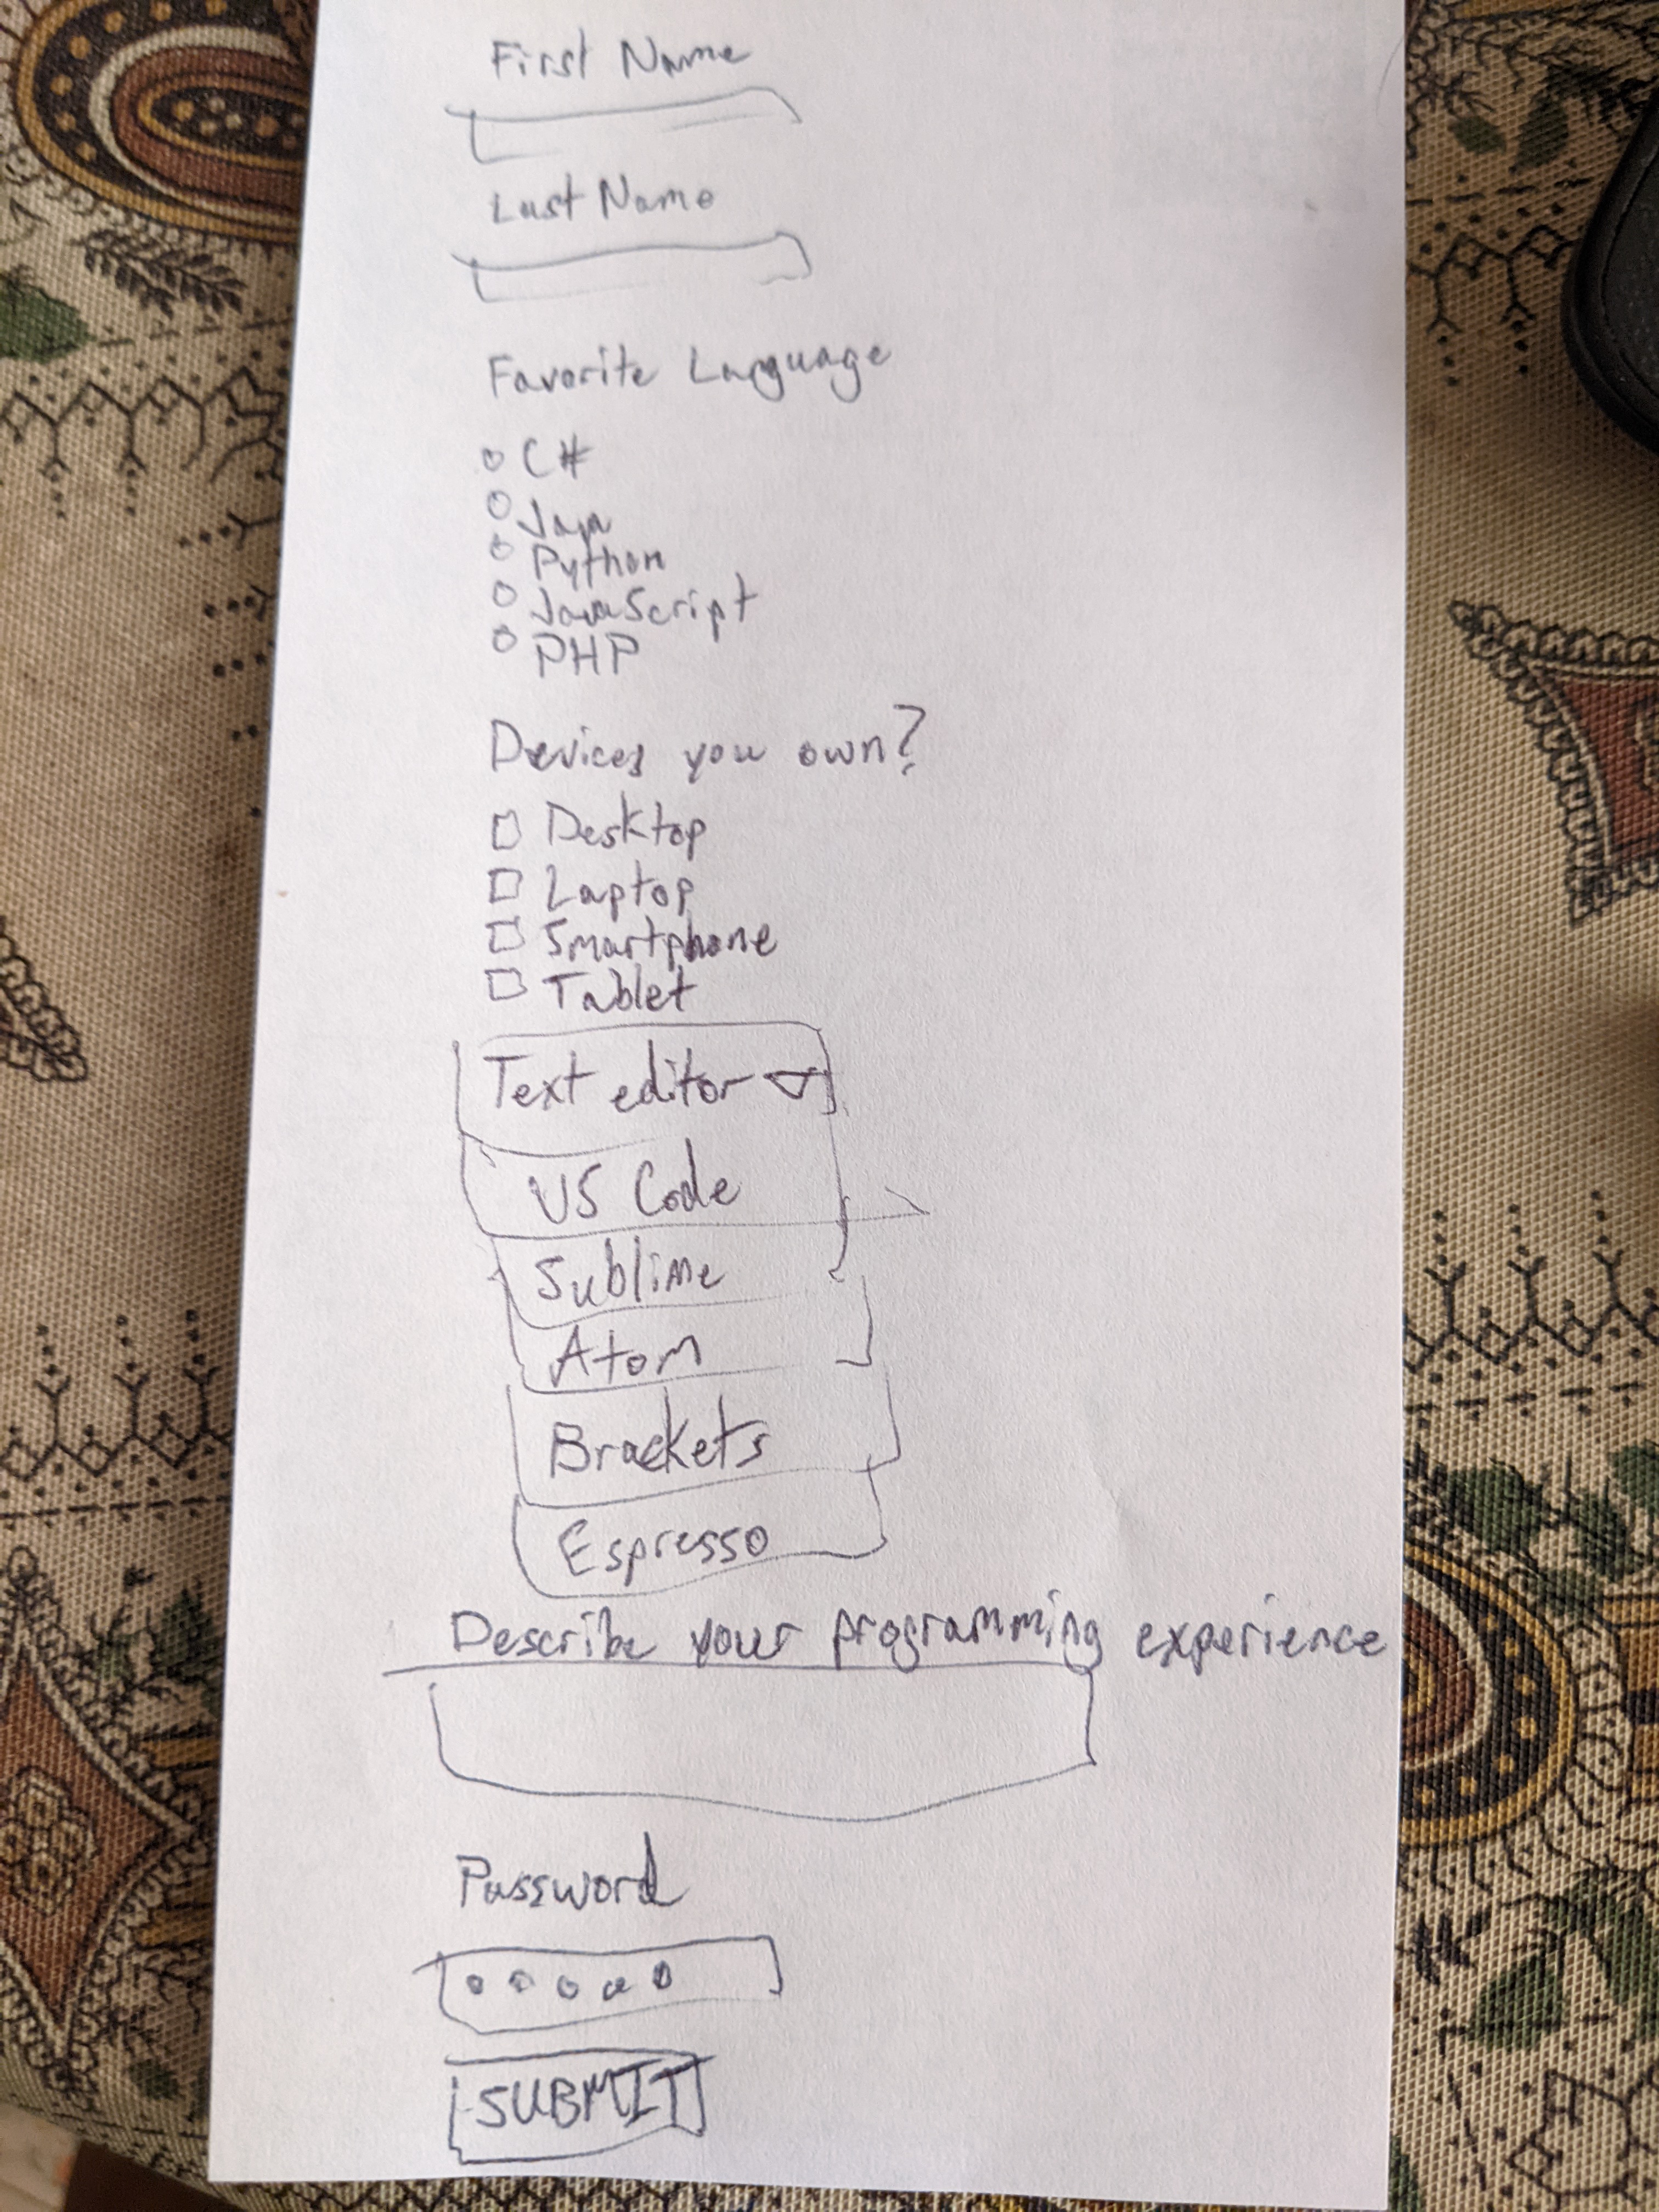 First Name
Last Name
Favorite Language
C#
Java
Python
JavaScript
PHP
Devices you own?
Desktop
Laptop
Smartphone
Tablet
Text editor
VS Code
Sublime
Atom
Brackets
Espresso
Describe your programming experience
Password
SUBMIT